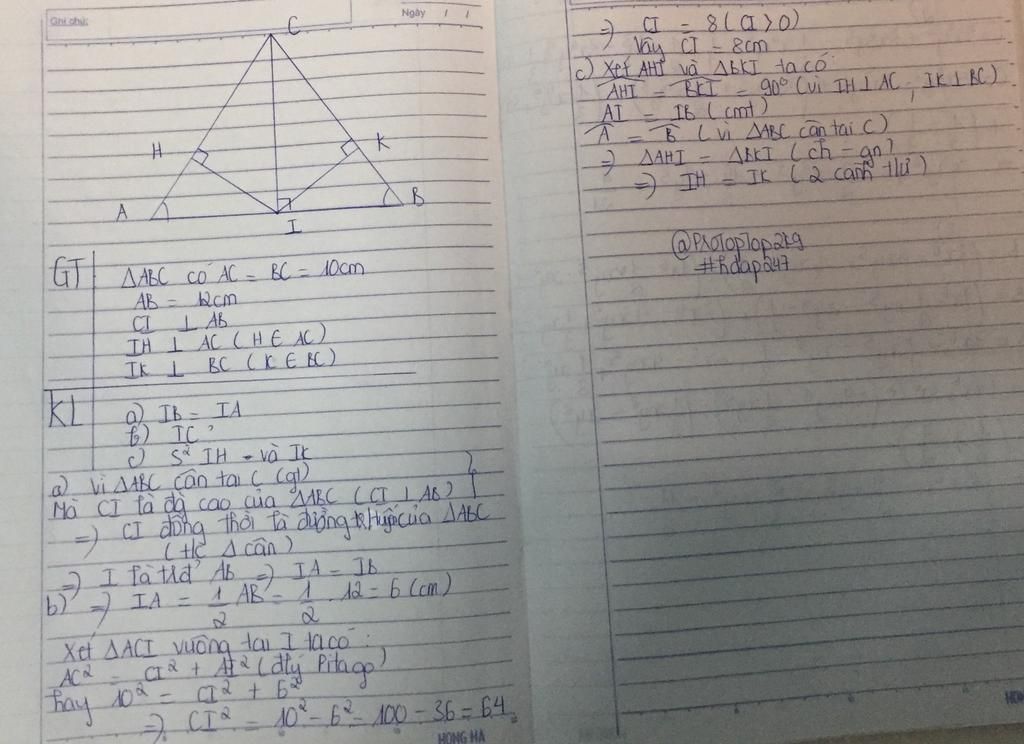 Ghi chú:
Ngày / /
C
H
K
A
B
I
GT
ΔABC có AC = BC = 10cm
AB = 12cm
CI ⊥ AB
IH ⊥ AC (H ∈ AC)
IK ⊥ BC (K ∈ BC)
KL
a) IB = IA
b) IC ?
c) S² IH và IK
a) Vì ΔABC cân tại C (gt)
Mà CI là đg cao của ΔABC (CI ⊥ AB)
=> CI đồng thời là đường tr.tuyến của ΔABC
(t/c Δ cân)
=> I là tđ' AB => IA = IB
b) => IA = 1/2 AB = 1/2 . 12 = 6 (cm)
Xét ΔACI vuông tại I ta có:
AC² = CI² + AI² (đlý Pitago)
hay 10² = CI² + 6²
=> CI² = 10² - 6² = 100 - 36 = 64
HONG HA
=> CI = 8 (CI > 0)
Vậy CI = 8cm
c) Xét AHI và ΔBKI ta có
AHI = BKI = 90° (vì IH ⊥ AC, IK ⊥ BC)
AI = IB (cmt)
A = B (vì ΔABC cân tại C)
=> ΔAHI = ΔBKI (ch - gn)
=> IH = IK (2 cạnh t/ư)
#hdap247
HONG